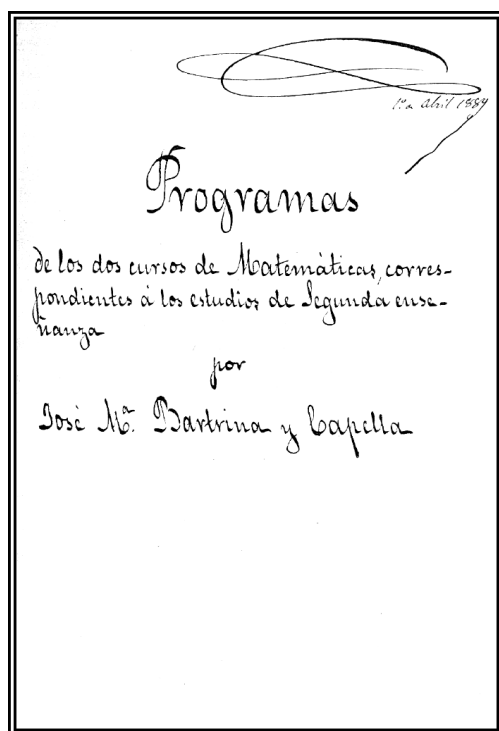 Abril 1889
Programas
de los dos cursos de Matemáticas, corres-
pondientes á los estudios de Segunda ense-
ñanza
por
José Mª. Bartrina y Capella